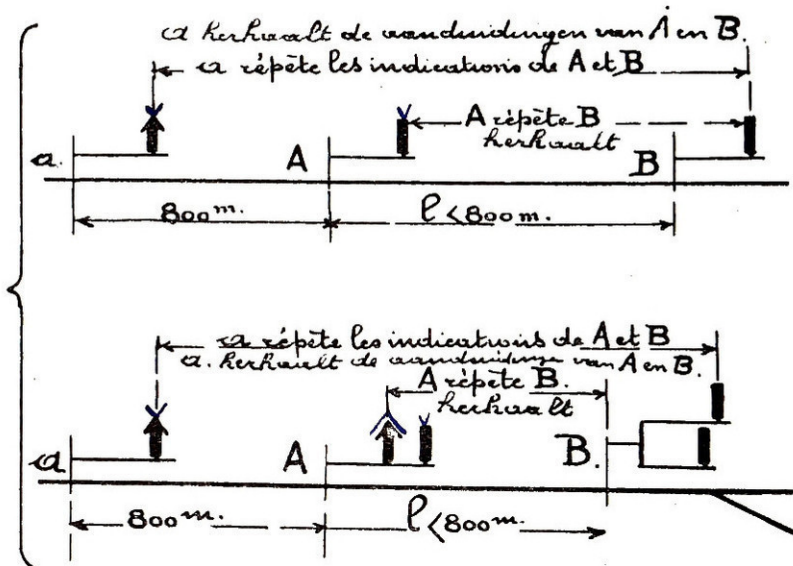 a herhaalt de aanduidingen van A en B.
a répète les indications de A et B
A répète B
herhaalt
a.
A
B
800m.
l<800m.
a répète les indications de A et B
a. herhaalt de aanduidinge van A en B.
A répète B.
herhaalt
a
A
B.
800m.
l<800m.